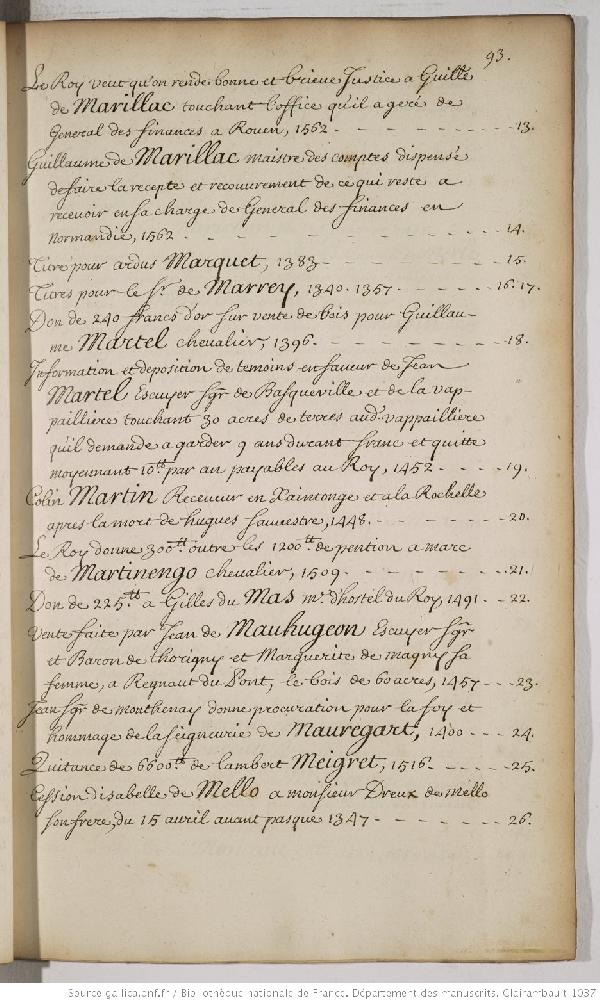 93.
Le Roy veut qu'on rende bonne et brieue Justice a Guille
de Marillac touchant l'office qu'il a geré de
General des finances a Rouen, 1562 - - - - - - 13.
Guillaume de Marillac maistre des comptes dispensé
de faire la recepte et recouurement de ce qui reste a
receuoir en sa charge de General des finances en
Normandie, 1562 - - - - - - - - - 14.
Titre pour ardus Marquet, 1383 - - - - - - 15.
Titres pour le Sr. de Marrey, 1340. 1357 - - - - - 16. 17.
Don de 240 francs d'or sur vente de bois pour Guillau-
me Martel cheualier, 1396. - - - - - - 18.
Information et deposition de temoins en faueur de Jean
Martel Escuyer sgr de Basqueville et de la vap-
pailliere touchant 30 acres de terres aud. vappailliere
qu'il demande a garder 9 ans durant franc et quitte
moyennant 10tt par an payables au Roy, 1452 - - - - 19.
Colin Martin Receueur en Xaintonge et a la Rochelle
apres la mort de hugues sauuestre, 1448. - - - - - - 20.
Le Roy donne 300tt outre les 1200tt de pention a marc
de Martinengo cheualier, 1509 - - - - - - 21.
Don de 225tt a Gilles du Mas me. d'hostel du Roy, 1491 - - 22.
Vente faite par Jean de Mauhugeon Escuyer sgr
et Baron de thorigny et Marguerite de magny sa
femme, a Regnaut du Pont, le bois de 60 acres, 1457 - - - 23.
Jean sgr de monthenay donne procuration pour la foy et
hommage de la seigneurie de Mauregart, 1400 - - - 24.
Quitance de 6600tt de lambert Meigret, 1516. - - - - - 25.
Cession d'isabelle de Mello a monsieur Dreux de mello
son frere, du 15 auril auant pasque 1347 - - - - - - - 26.
Source gallica.bnf.fr / Bibliothèque nationale de France. Département des manuscrits. Clairambault 1037